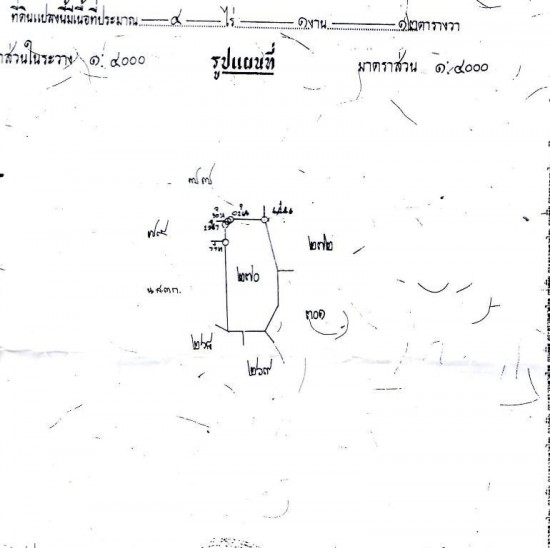 ที่ดินแปลงนี้มีเนื้อที่ประมาณ ๔ ไร่ ๑ งาน ๑๒ ตารางวา
าส่วนในระวาง ๑:๔๐๐๐ รูปแผนที่ มาตราส่วน ๑:๔๐๐๐
๗๗
๒๗๒
๒๗๐
น.ส.๓ก.
๓๐๑
๒๖๘
๒๖๙